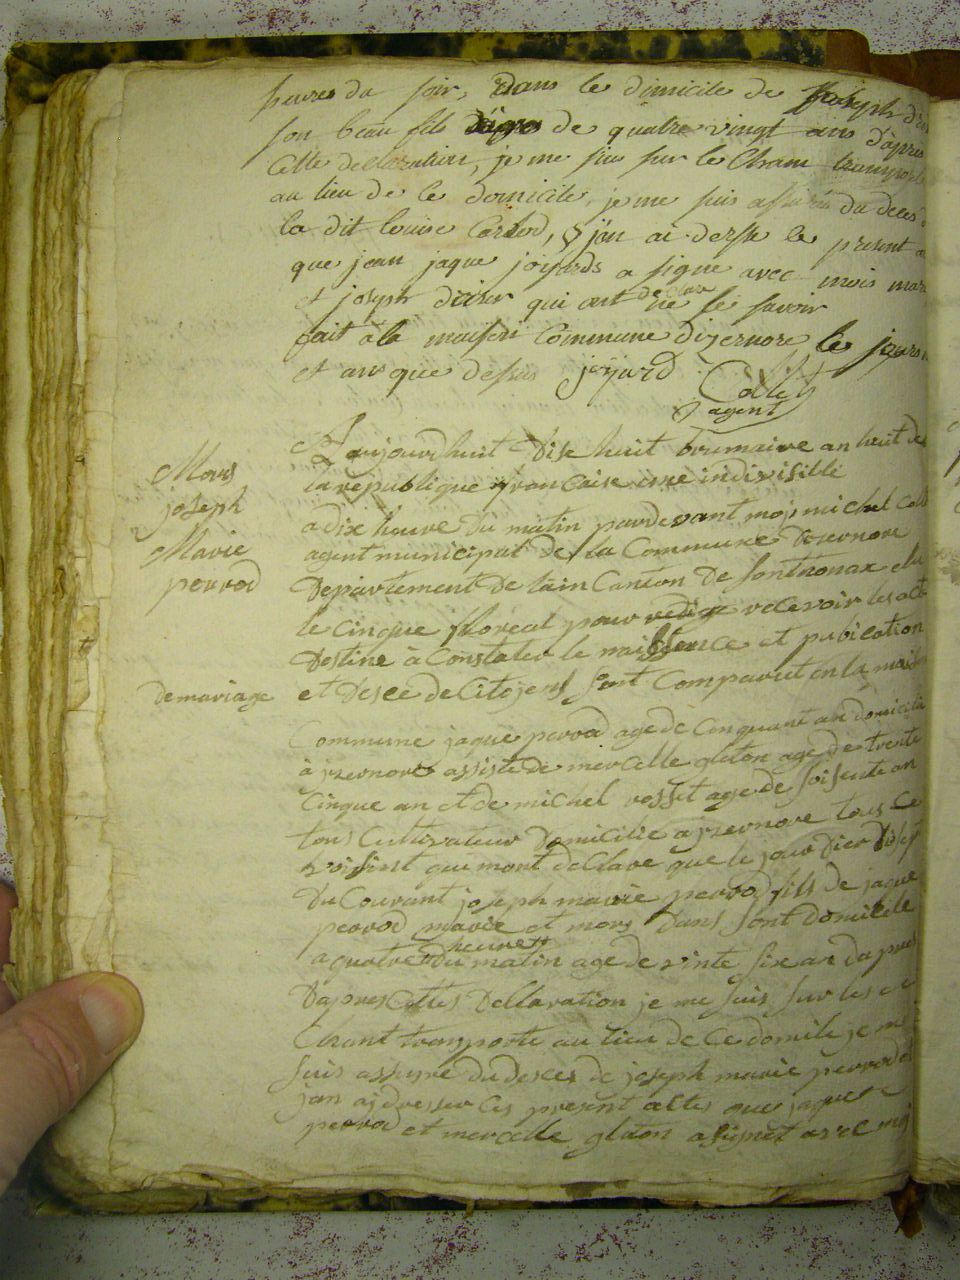 heures du soir, dans le dimicile de joseph
son beau fils âgé de quatre vingt ans d'apres
cette declaration, je me suis sur le cham transporte
au lieu de ce domicile, je me suis assuré du deces
la dit louise Carlod, j'an ai desse le present
que jean jaque joyards a signe avec mois
et joseph qui ont declare ne le savoir
fait à la maison Commune dizernore le jours
et ans que desus joyard
agent
Mors
joseph
Marie
perrod
demariage
aujourdhuit dise huit brumaire an huit de
la republique francaise une indivisible
a dix heure du matin pardevant moy michel
agent municipal de la Commune Dezernore
Departement de lain Canton de sontronax elu
le cinque floreal pour redige recevoir les act
Destine à Constater le naissence et publication
et Desee de Citojens sont Comparut en la maison
Commune jaque perrod age de Cinquant an domicilia
à jzernore assiste de mercelle gluton age de trente
Cinque an et de michel rosset age de soisente an
tous Cultivateur Domicilie a jzernore tous ce
voisint qui mont declare que le jour dier disept
du Courant joseph marie perrod fils de jaque
perrod marie et mors dans sont domicile
a quatre heures du matin age de vinte six an dapres
Dapres Cettes Dellaration je me suis sur les
Chant transporte au lieu de Ce domile je me
suis assure du deces de joseph marie perrod
jan aj dresser Ces present actes que jaque
perrod et mercelle gluton a signet avec moj